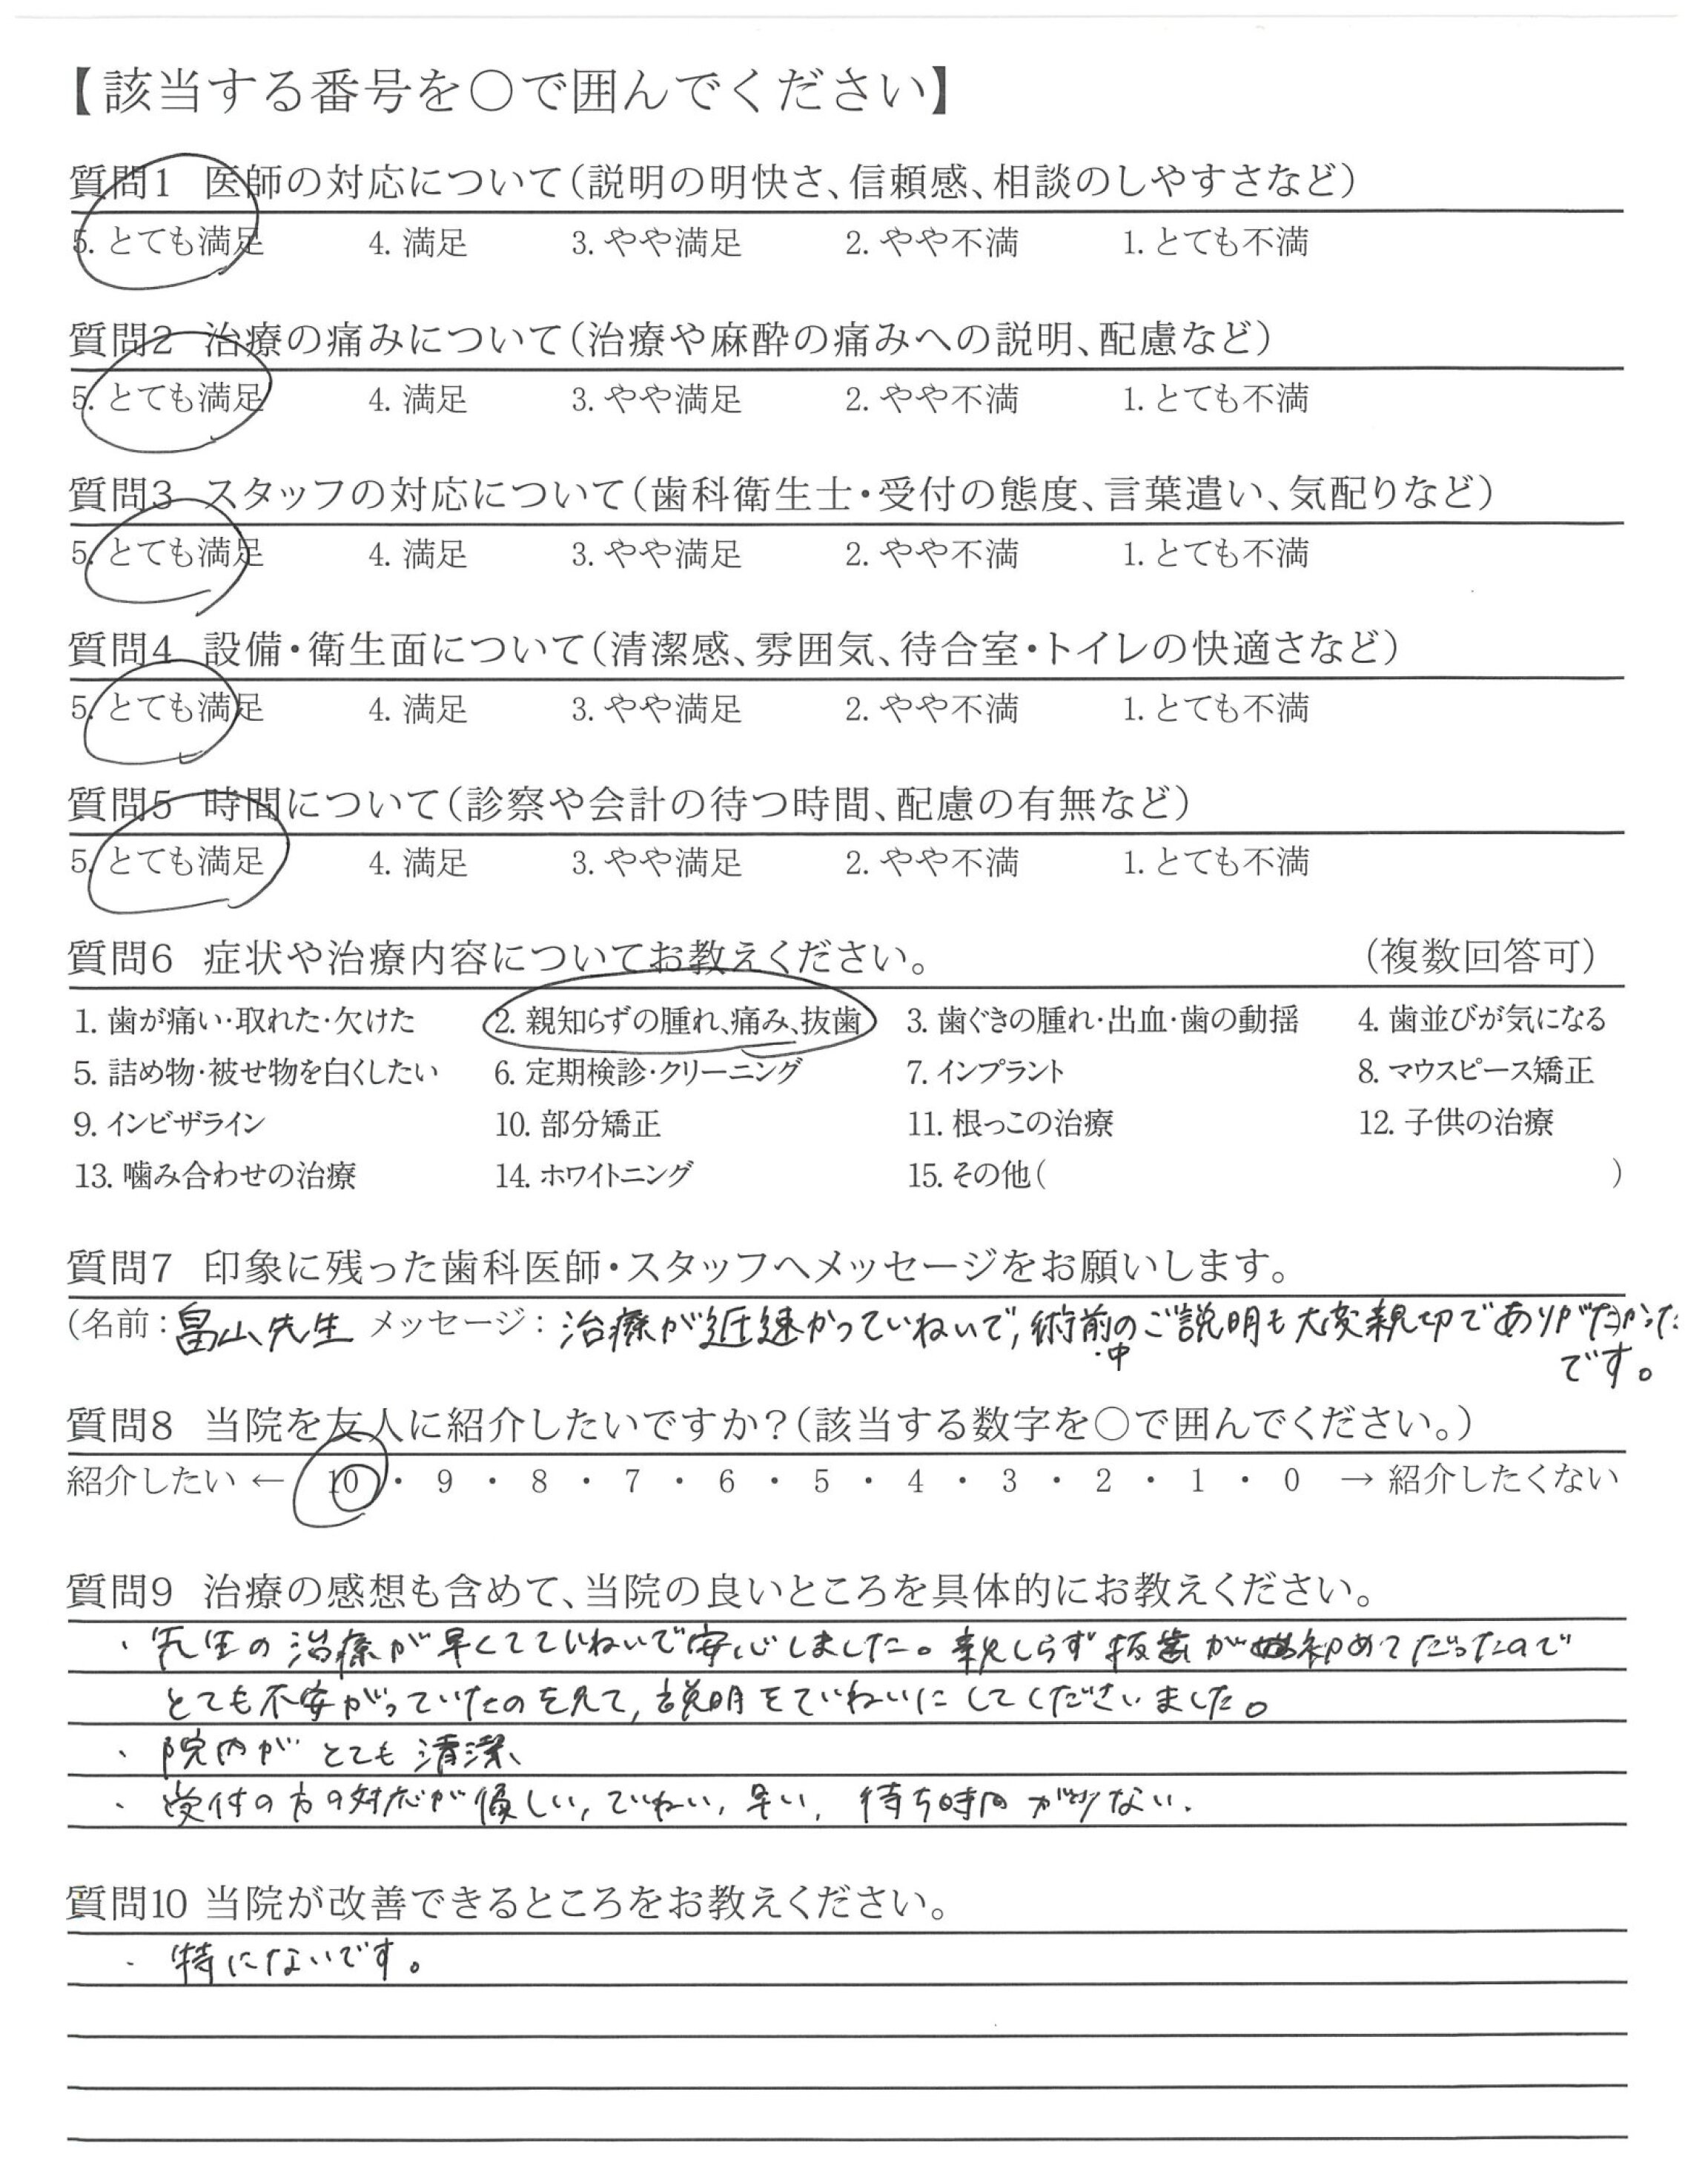 【該当する番号を○で囲んでください】
質問1 医師の対応について(説明の明快さ、信頼感、相談のしやすさなど)
5. とても満足 4. 満足 3. やや満足 2. やや不満 1. とても不満
質問2 治療の痛みについて(治療や麻酔の痛みへの説明、配慮など)
5. とても満足 4. 満足 3. やや満足 2. やや不満 1. とても不満
質問3 スタッフの対応について(歯科衛生士・受付の態度、言葉遣い、気配りなど)
5. とても満足 4. 満足 3. やや満足 2. やや不満 1. とても不満
質問4 設備・衛生面について(清潔感、雰囲気、待合室・トイレの快適さなど)
5. とても満足 4. 満足 3. やや満足 2. やや不満 1. とても不満
質問5 時間について(診察や会計の待つ時間、配慮の有無など)
5. とても満足 4. 満足 3. やや満足 2. やや不満 1. とても不満
質問6 症状や治療内容についてお教えください。 (複数回答可)
1. 歯が痛い・取れた・欠けた 2. 親知らずの腫れ、痛み、抜歯 3. 歯ぐきの腫れ・出血・歯の動揺 4. 歯並びが気になる
5. 詰め物・被せ物を白くしたい 6. 定期検診・クリーニング 7. インプラント 8. マウスピース矯正
9. インビザライン 10. 部分矯正 11. 根っこの治療 12. 子供の治療
13. 噛み合わせの治療 14. ホワイトニング 15. その他( )
質問7 印象に残った歯科医師・スタッフへメッセージをお願いします。
(名前: 畠山先生 メッセージ: 治療が迅速かつていねいで、術前・中のご説明も大変親切でありがたかった
です。
質問8 当院を友人に紹介したいですか?(該当する数字を○で囲んでください。)
紹介したい ← 10 ・ 9 ・ 8 ・ 7 ・ 6 ・ 5 ・ 4 ・ 3 ・ 2 ・ 1 ・ 0 → 紹介したくない
質問9 治療の感想も含めて、当院の良いところを具体的にお教えください。
・先生の治療が早くてていねいで安心しました。親しらず抜歯が初めてだったので
とても不安がっていたのを見て、説明をていねいにしてくださいました。
・院内がとても清潔、
・受付の方の対応が優しい、ていねい、早い、待ち時間が少ない.
質問10 当院が改善できるところをお教えください。
・特にないです。